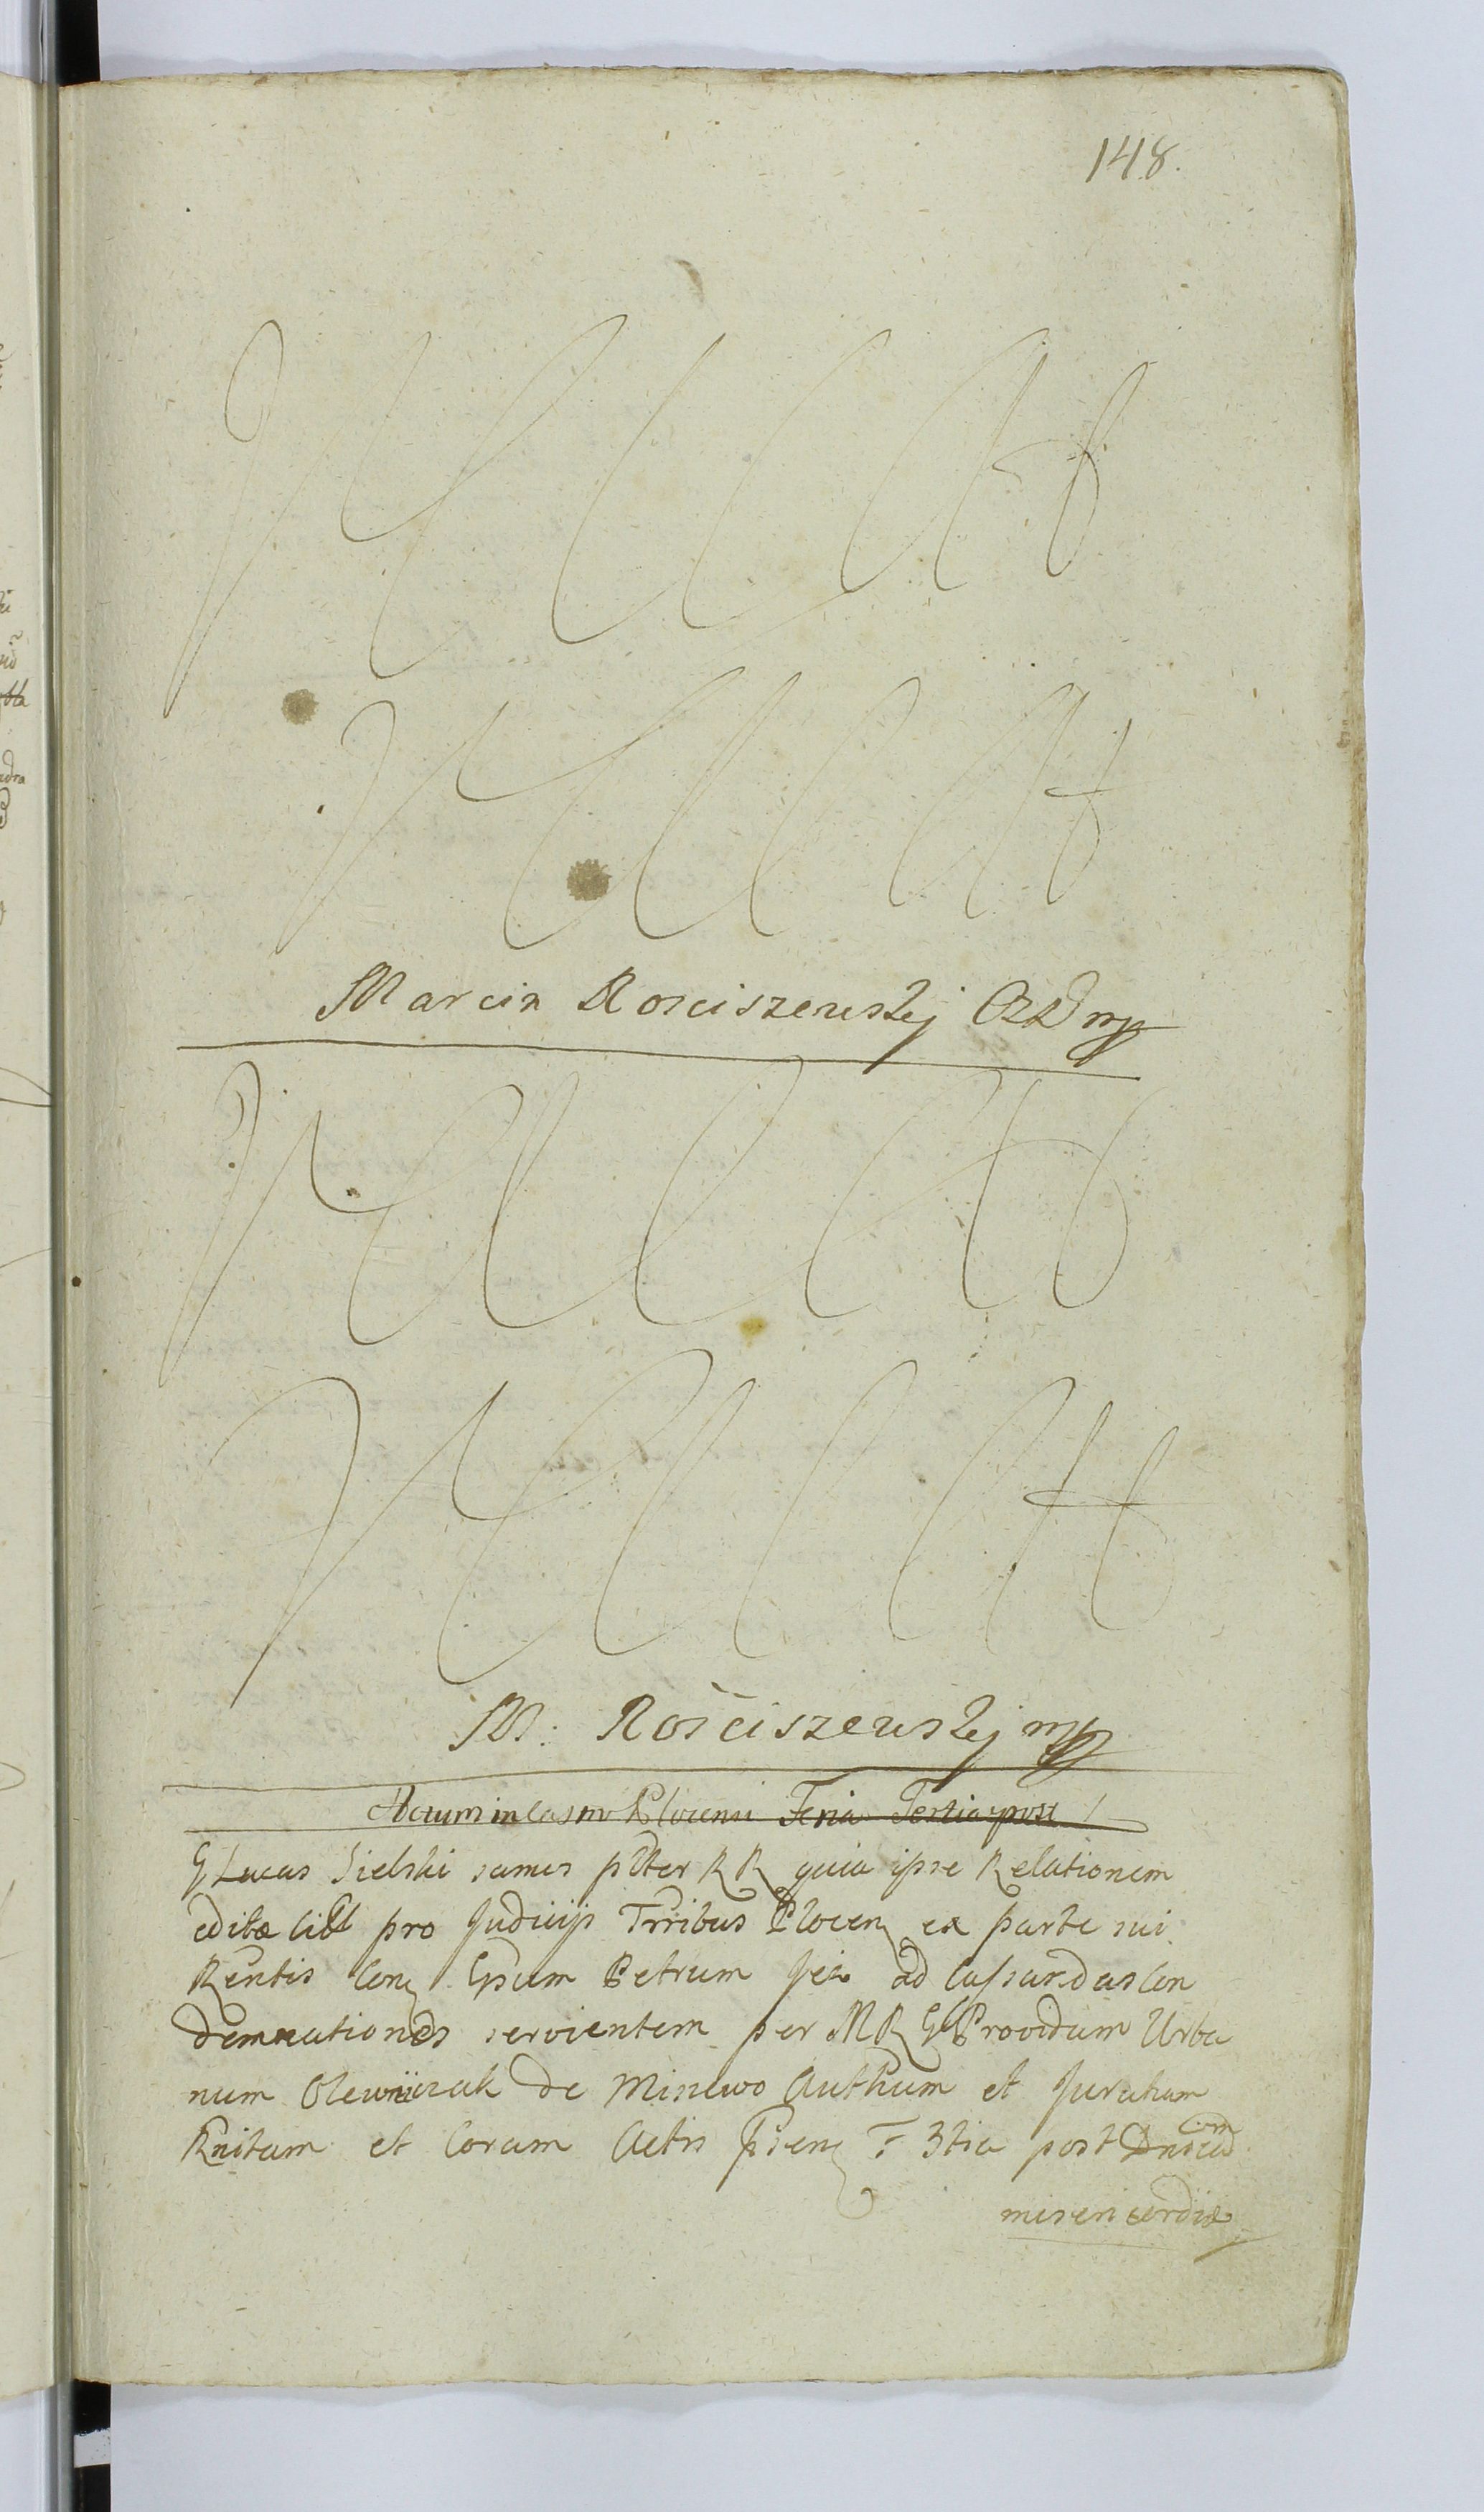 148.
Marcin Rosciszewskj mp
M: Rościszewskj mp
Actum in Castro Plocensi Feria Tertia post
G Lucas Sielski sames pltter RR quia ipse Relationem
editae Citt pro Judicijs Trribus Plocen ex parte sui
Rentis Con Gsum Petrum ad Cassandas Con
demnationes servientem per MR Providum Urba
num Olewniczak de Minewo Authum et Juratum
Rnitam et Coram Actis psen F 3tia post Dnicam
misericordiae